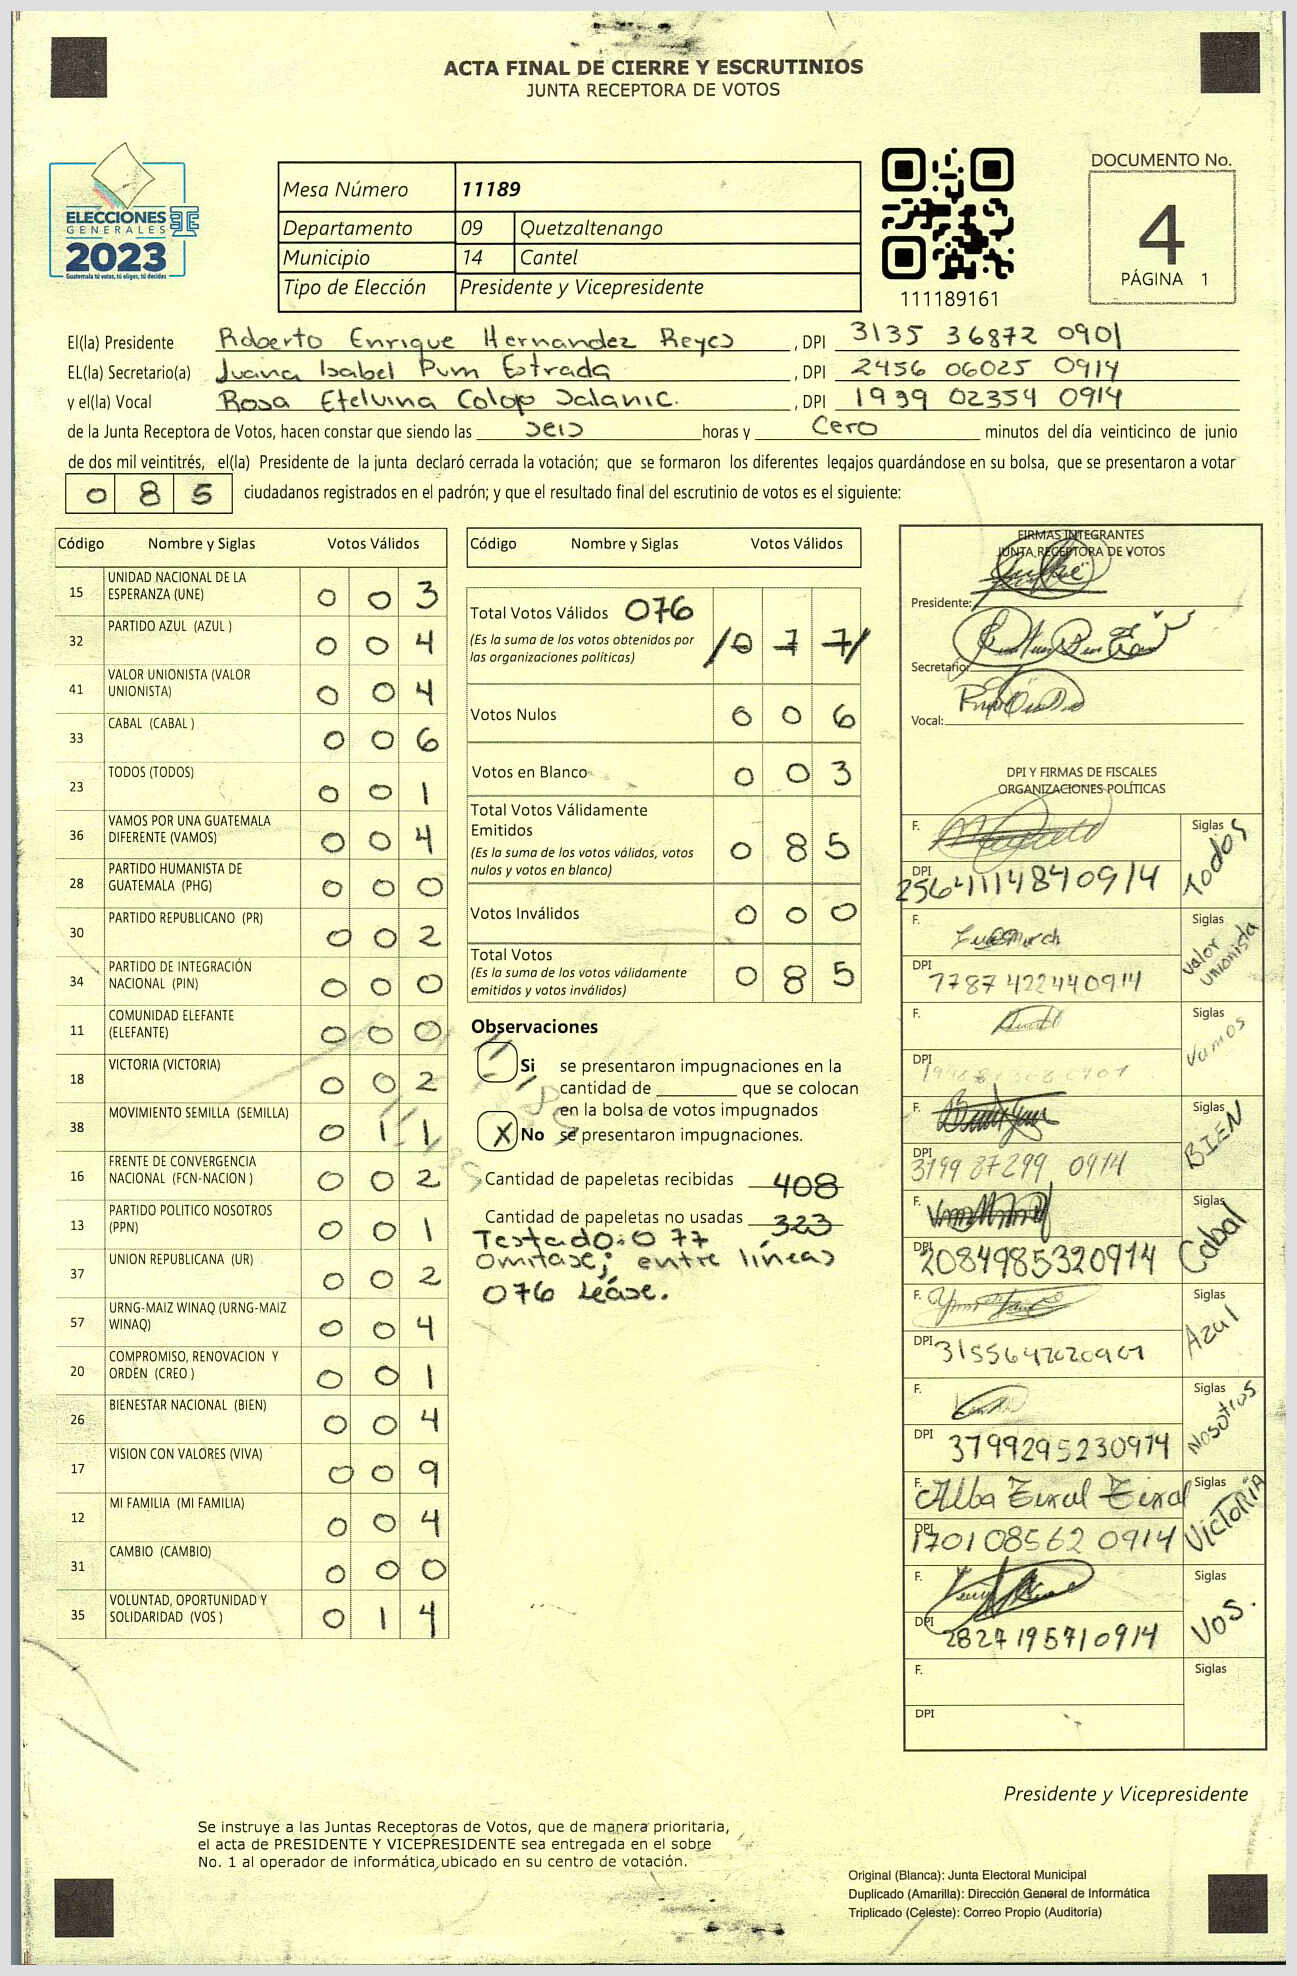 ACTA FINAL DE CIERRE Y ESCRUTINIOS
JUNTA RECEPTORA DE VOTOS
ELECCIONES
GENERALES
2023
Guatemala tú votas, tú eliges, tú decides
Mesa Número 11189
Departamento 09 Quetzaltenango
Municipio 14 Cantel
Tipo de Elección Presidente y Vicepresidente
111189161
DOCUMENTO No.
4
PÁGINA 1
El(la) Presidente Roberto Enrique Hernandez Reyes, DPI 3135 36872 0901
EL(la) Secretario(a) Juana Isabel Pum Estrada, DPI 2456 06025 0914
y el(la) Vocal Rosa Etelvina Colop Salanic., DPI 1939 02354 0914
de la Junta Receptora de Votos, hacen constar que siendo las seis horas y cero minutos del día veinticinco de junio
de dos mil veintitrés, el(la) Presidente de la junta declaró cerrada la votación; que se formaron los diferentes legajos guardándose en su bolsa, que se presentaron a votar
085 ciudadanos registrados en el padrón; y que el resultado final del escrutinio de votos es el siguiente:
Código Nombre y Siglas Votos Válidos
15 UNIDAD NACIONAL DE LA ESPERANZA (UNE) 0 0 3
32 PARTIDO AZUL (AZUL ) 0 0 4
41 VALOR UNIONISTA (VALOR UNIONISTA) 0 0 4
33 CABAL (CABAL ) 0 0 6
23 TODOS (TODOS) 0 0 1
36 VAMOS POR UNA GUATEMALA DIFERENTE (VAMOS) 0 0 4
28 PARTIDO HUMANISTA DE GUATEMALA (PHG) 0 0 0
30 PARTIDO REPUBLICANO (PR) 0 0 2
34 PARTIDO DE INTEGRACIÓN NACIONAL (PIN) 0 0 0
11 COMUNIDAD ELEFANTE (ELEFANTE) 0 0 0
18 VICTORIA (VICTORIA) 0 0 2
38 MOVIMIENTO SEMILLA (SEMILLA) 0 1 1
16 FRENTE DE CONVERGENCIA NACIONAL (FCN-NACION ) 0 0 2
13 PARTIDO POLITICO NOSOTROS (PPN) 0 0 1
37 UNION REPUBLICANA (UR) 0 0 2
57 URNG-MAIZ WINAQ (URNG-MAIZ WINAQ) 0 0 4
20 COMPROMISO, RENOVACION Y ORDEN (CREO ) 0 0 1
26 BIENESTAR NACIONAL (BIEN) 0 0 4
17 VISION CON VALORES (VIVA) 0 0 9
12 MI FAMILIA (MI FAMILIA) 0 0 4
31 CAMBIO (CAMBIO) 0 0 0
35 VOLUNTAD, OPORTUNIDAD Y SOLIDARIDAD (VOS ) 0 1 4
Código Nombre y Siglas Votos Válidos
Total Votos Válidos 076 /0 7 7/
(Es la suma de los votos obtenidos por
las organizaciones políticas)
Votos Nulos 0 0 6
Votos en Blanco 0 0 3
Total Votos Válidamente
Emitidos 0 8 5
(Es la suma de los votos válidos, votos
nulos y votos en blanco)
Votos Inválidos 0 0 0
Total Votos 0 8 5
(Es la suma de los votos válidamente
emitidos y votos inválidos)
Observaciones
Si se presentaron impugnaciones en la
cantidad de ________ que se colocan
en la bolsa de votos impugnados
X No se presentaron impugnaciones.
Cantidad de papeletas recibidas 408
Cantidad de papeletas no usadas 323
Testado: 0 77
Omitase; entre líneas
076 Léase.
FIRMAS INTEGRANTES
JUNTA RECEPTORA DE VOTOS
Presidente:
Secretario:
Vocal:
DPI Y FIRMAS DE FISCALES
ORGANIZACIONES POLÍTICAS
F. Siglas Todos
DPI 2564111480914
F. Siglas Valor Unionista
DPI 7787 42244 0914
F. Siglas Vamos
DPI
F. Siglas BIEN
DPI 3199 87299 0914
F. Siglas Cabal
DPI 2084985320914
F. Siglas Azul
DPI
F. Siglas Nosotros
DPI 3799295230914
F. Alba Siglas VICTORIA
DPI 1701 08562 0914
F. Siglas Vos.
DPI 2827 19571 0914
F. Siglas
DPI
Presidente y Vicepresidente
Se instruye a las Juntas Receptoras de Votos, que de manera prioritaria,
el acta de PRESIDENTE Y VICEPRESIDENTE sea entregada en el sobre
No. 1 al operador de informática ubicado en su centro de votación.
Original (Blanca): Junta Electoral Municipal
Duplicado (Amarilla): Dirección General de Informática
Triplicado (Celeste): Correo Propio (Auditoría)